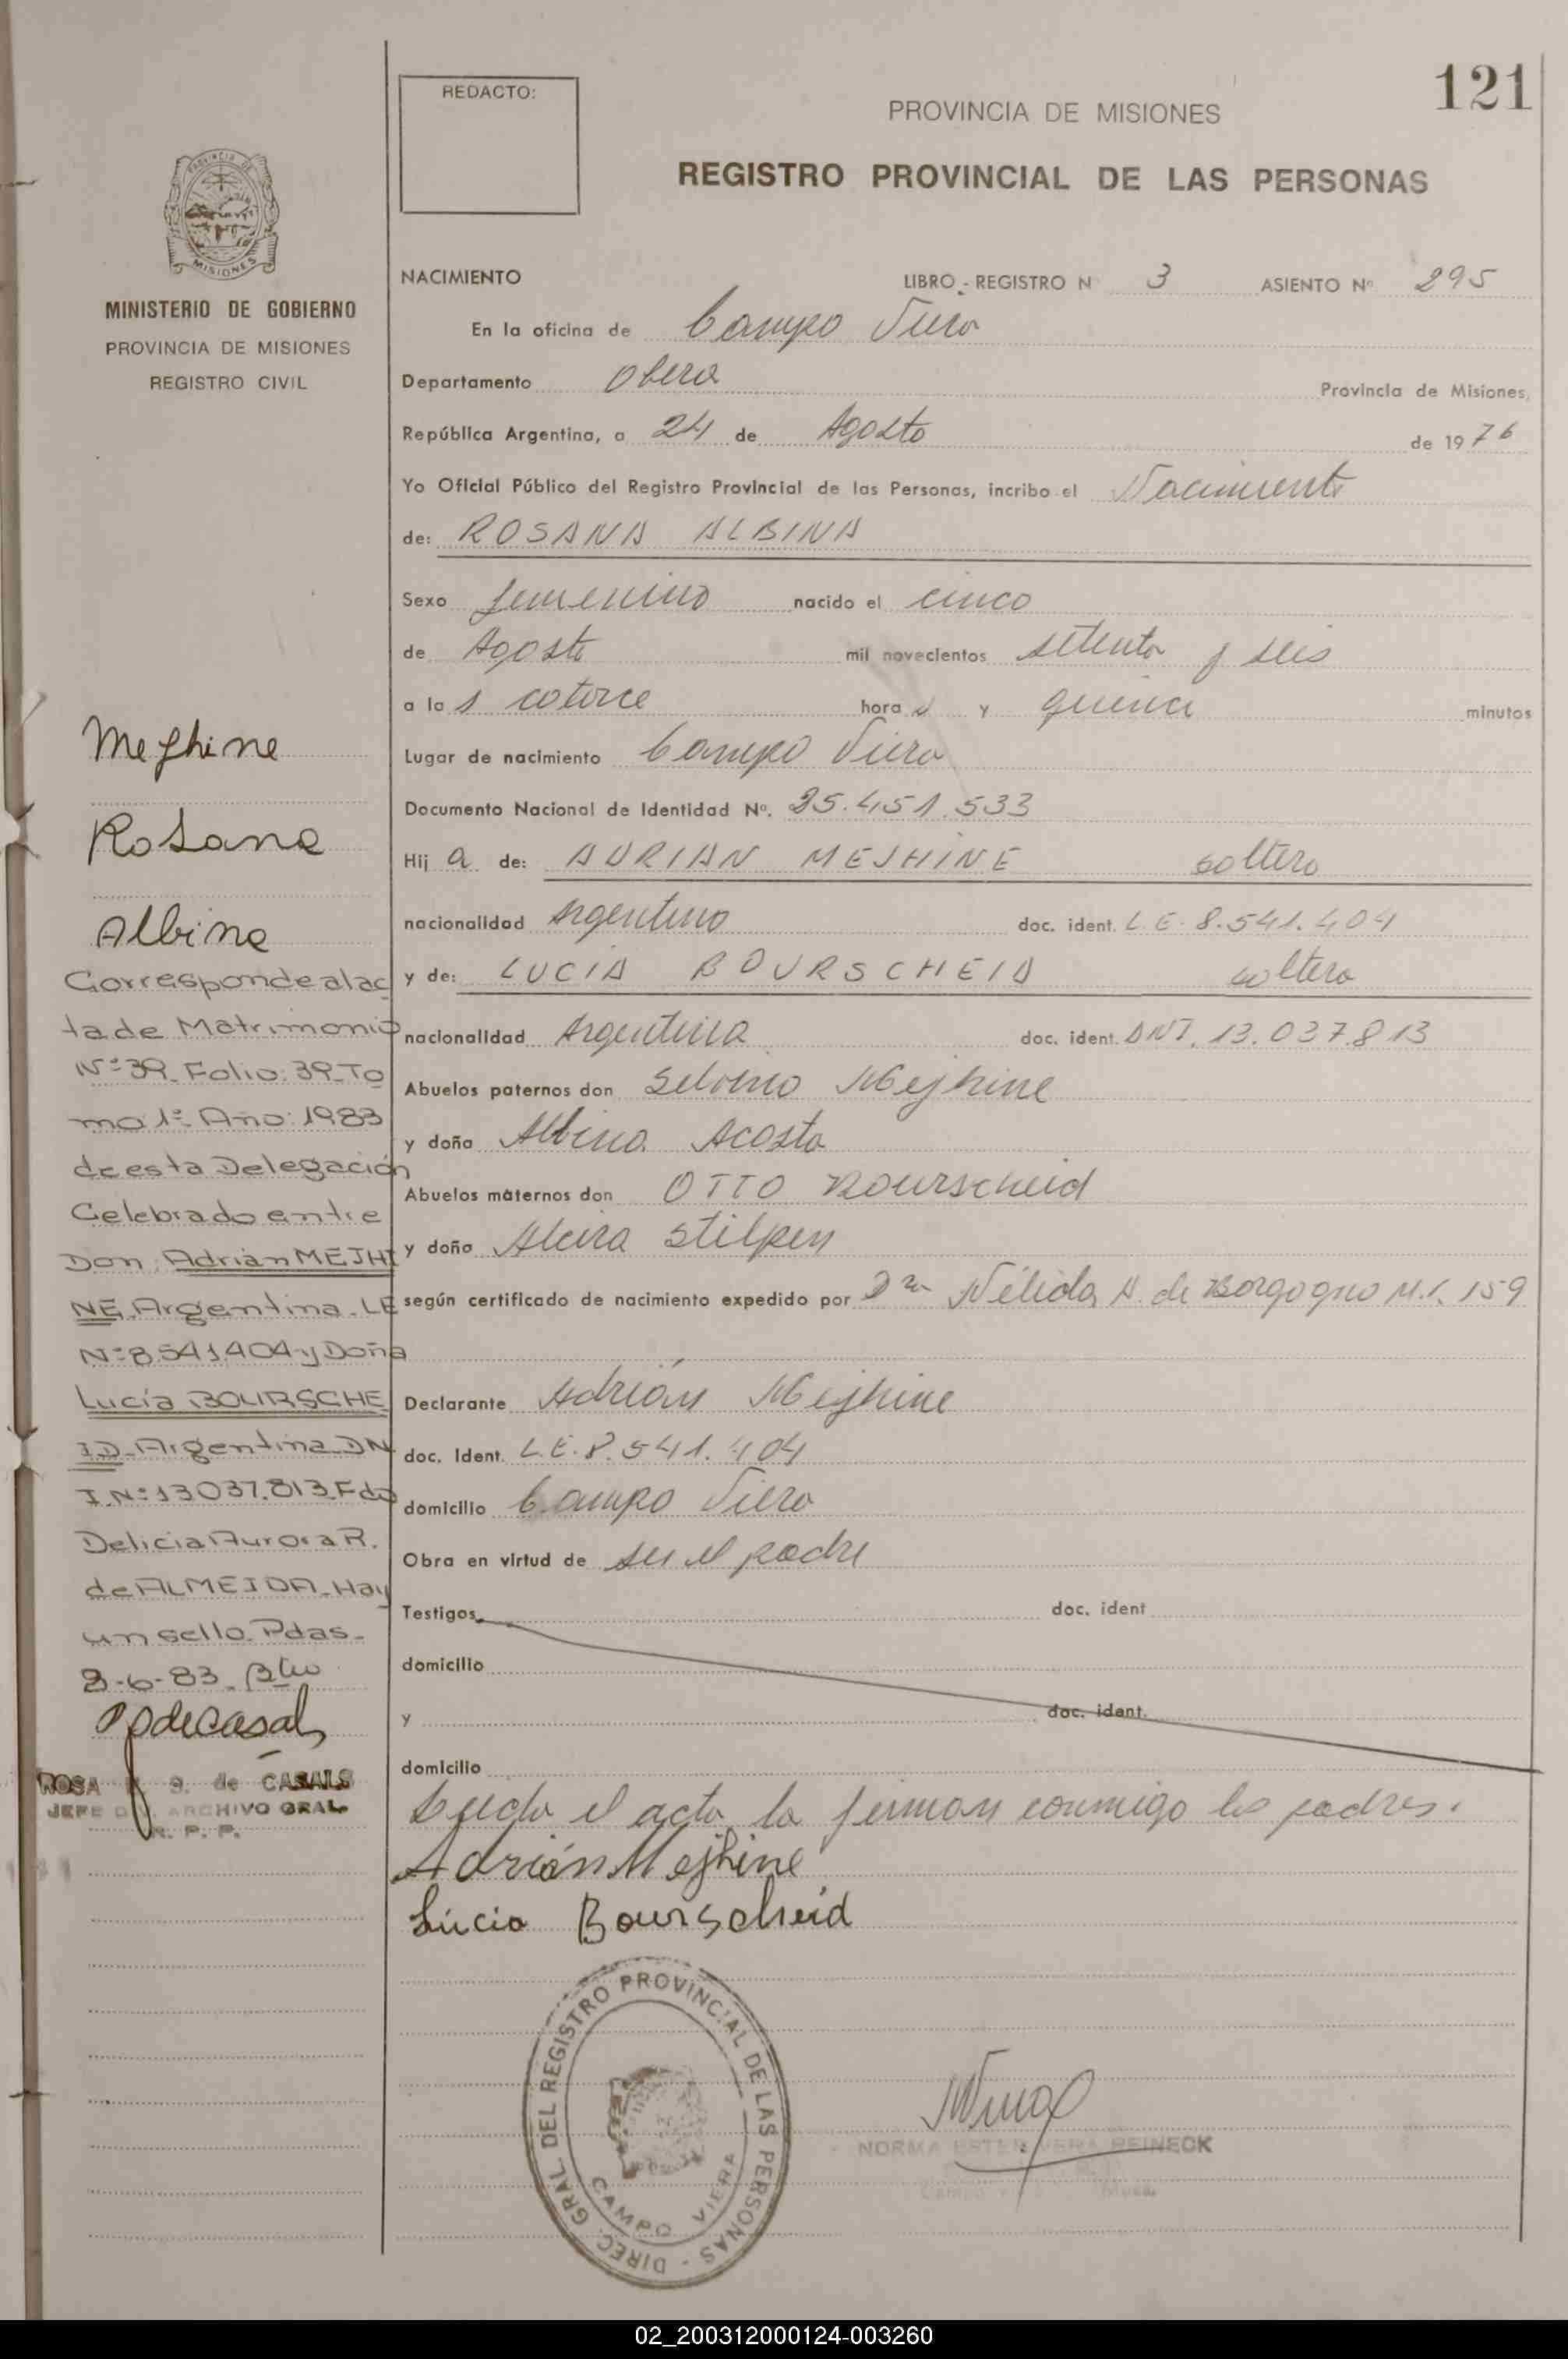 121
REDACTO:
PROVINCIA DE MISIONES
REGISTRO PROVINCIAL DE LAS PERSONAS
PROVINCIA DE
MISIONES
MINISTERIO DE GOBIERNO
PROVINCIA DE MISIONES
REGISTRO CIVIL
NACIMIENTO LIBRO - REGISTRO N 3 ASIENTO Nº 295
En la oficina de Campo Viera
Departamento Obera Provincia de Misiones,
República Argentina, a 24 de Agosto de 1976
Yo Oficial Público del Registro Provincial de las Personas, incribo el Nacimiento
de: ROSANA ALBINA
Sexo femenino nacido el cinco
de Agosto mil novecientos setenta y seis
a las catorce horas y quince minutos
Lugar de nacimiento Campo Viera
Documento Nacional de Identidad Nº. 25.451.533
Hija de: ADRIAN MEJHINE soltero
nacionalidad Argentino doc. ident. L.E. 8.541.404
y de: LUCIA BOURSCHEID soltera
nacionalidad Argentina doc. ident. DNI. 13.037.813
Abuelos paternos don Mejhine
y doña Albina Acosta
Abuelos maternos don OTTO Bourscheid
y doña Alcira Stilpen
según certificado de nacimiento expedido por Dra Nélida H. de Borgogno M.I. 159
Declarante Adrián Mejhine
doc. Ident. L.E. 8.541.404
domicilio Campo Viera
Obra en virtud de ser el padre
Testigos doc. ident
domicilio
y doc. ident.
domicilio
el acta, la firman conmigo los padres.
Adrián Mejhine
Lúcia Bourscheid
DIREC. GRAL DEL REGISTRO PROVINCIAL DE LAS PERSONAS -
CAMPO VIERA
NORMA ESTER VERA REINECK
Mejhine
Rosana
Albina
Corresponde alac
ta de Matrimonio
Nº 39. Folio: 39. To
mo 1º Año: 1983
de esta Delegación
Celebrado entre
Don: Adrián MEJHI
NE. Argentina. LE
Nº 8.541.404 y Doña
Lucía BOURSCHE
ID. Argentina. DN
I. Nº 13037.813. Fdo
Delicia Aurora R.
de ALMEIDA. Hay
un sello. Pdas.
8-6-83.
ROSA de CASALS
JEFE DIV. ARCHIVO GRAL.
R. P. P.
02_200312000124-003260